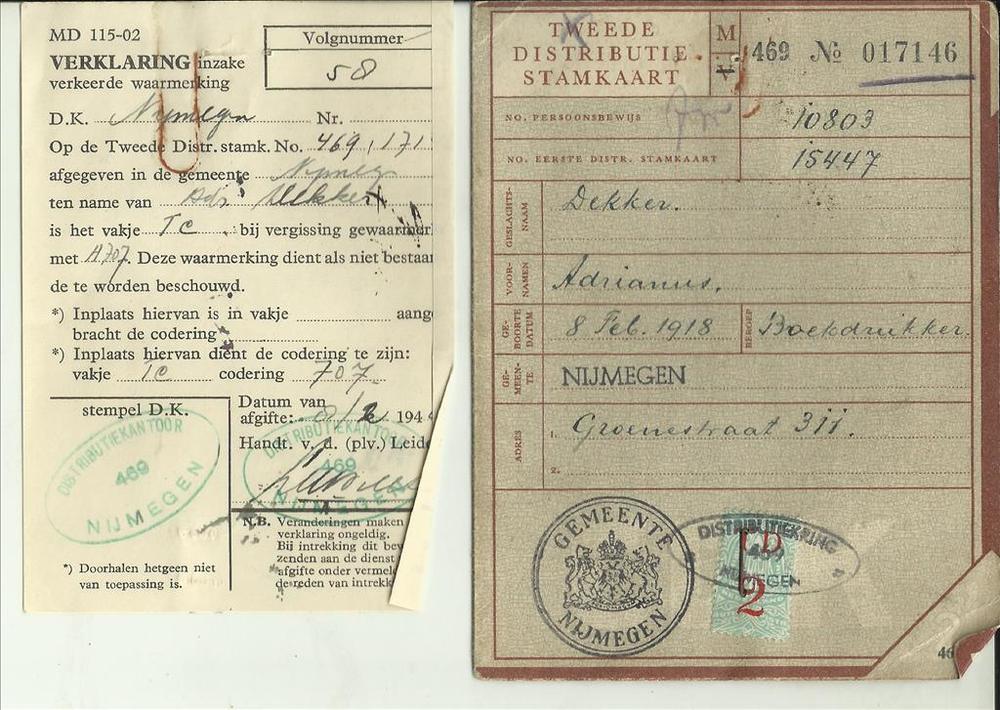 MD 115-02
VERKLARING inzake
verkeerde waarmerking
Volgnummer
58
D.K. Nijmegen Nr.
Op de Tweede Distr. stamk. No. 469,171
afgegeven in de gemeente Nijmeg
ten name van Adr. Dekker
is het vakje TC bij vergissing gewaarmer
met A707. Deze waarmerking dient als niet bestaan
de te worden beschouwd.
*) Inplaats hiervan is in vakje aang
bracht de codering
*) Inplaats hiervan dient de codering te zijn:
vakje TC codering 707
stempel D.K.
DISTRIBUTIEKANTOOR
469
NIJMEGEN
*) Doorhalen hetgeen niet
van toepassing is.
Datum van
afgifte: 8/2 194
Handt. v. d. (plv.) Leide
DISTRIBUTIEKANTOOR
469
NIJMEGEN
N.B. Veranderingen maken
verklaring ongeldig.
Bij intrekking dit bew
zenden aan de dienst
afgifte onder vermel
de reden van intrekk
TWEEDE
DISTRIBUTIE
STAMKAART
M
V
469 № 017146
NO. PERSOONSBEWIJS 10803
NO. EERSTE DISTR. STAMKAART 15447
GESLACHTS-
NAAM
Dekker.
VOOR-
NAMEN
Adrianus.
GE-
BOORTE
DATUM
8 Feb. 1918
BEROEP
Boekdrukker.
GE-
MEEN-
TE
NIJMEGEN
ADRES
1. Groenestraat 311.
2.
GEMEENTE
NIJMEGEN
DISTRIBUTIEKRING
NIJMEGEN
TD
2
46